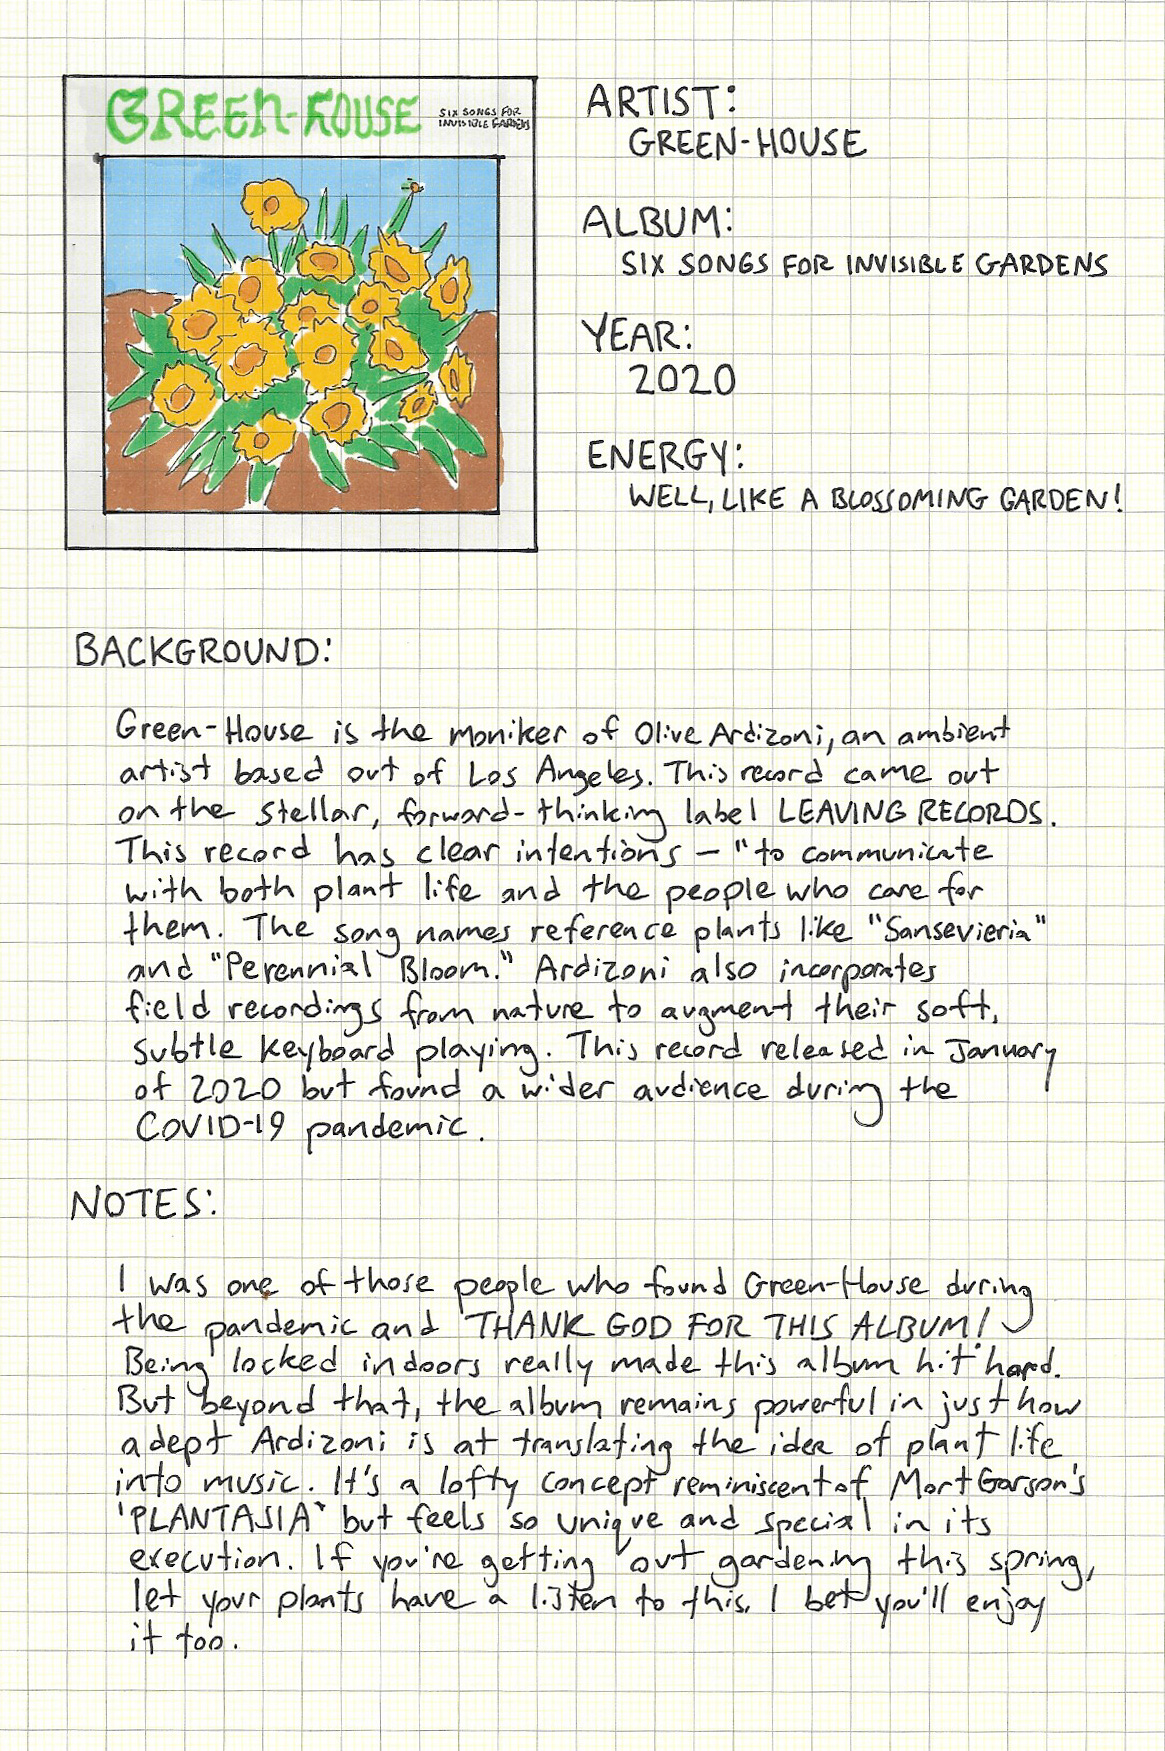 GREEN-HOUSE
SIX SONGS FOR
INVISIBLE GARDENS
ARTIST:
GREEN-HOUSE
ALBUM:
SIX SONGS FOR INVISIBLE GARDENS
YEAR:
2020
ENERGY:
WELL, LIKE A BLOSSOMING GARDEN!
BACKGROUND:
Green-House is the moniker of Olive Ardizoni, an ambient
artist based out of Los Angeles. This record came out
on the stellar, forward-thinking label LEAVING RECORDS.
This record has clear intentions – "to communicate
with both plant life and the people who care for
them. The song names reference plants like "Sansevieria"
and "Perennial Bloom." Ardizoni also incorporates
field recordings from nature to augment their soft,
subtle keyboard playing. This record released in January
of 2020 but found a wider audience during the
COVID-19 pandemic.
NOTES:
I was one of those people who found Green-House during
the pandemic and THANK GOD FOR THIS ALBUM!
Being locked indoors really made this album hit hard.
But beyond that, the album remains powerful in just how
adept Ardizoni is at translating the idea of plant life
into music. It's a lofty concept reminiscent of Mort Garson's
'PLANTASIA' but feels so unique and special in its
execution. If you're getting out gardening this spring,
let your plants have a listen to this. I bet you'll enjoy
it too.